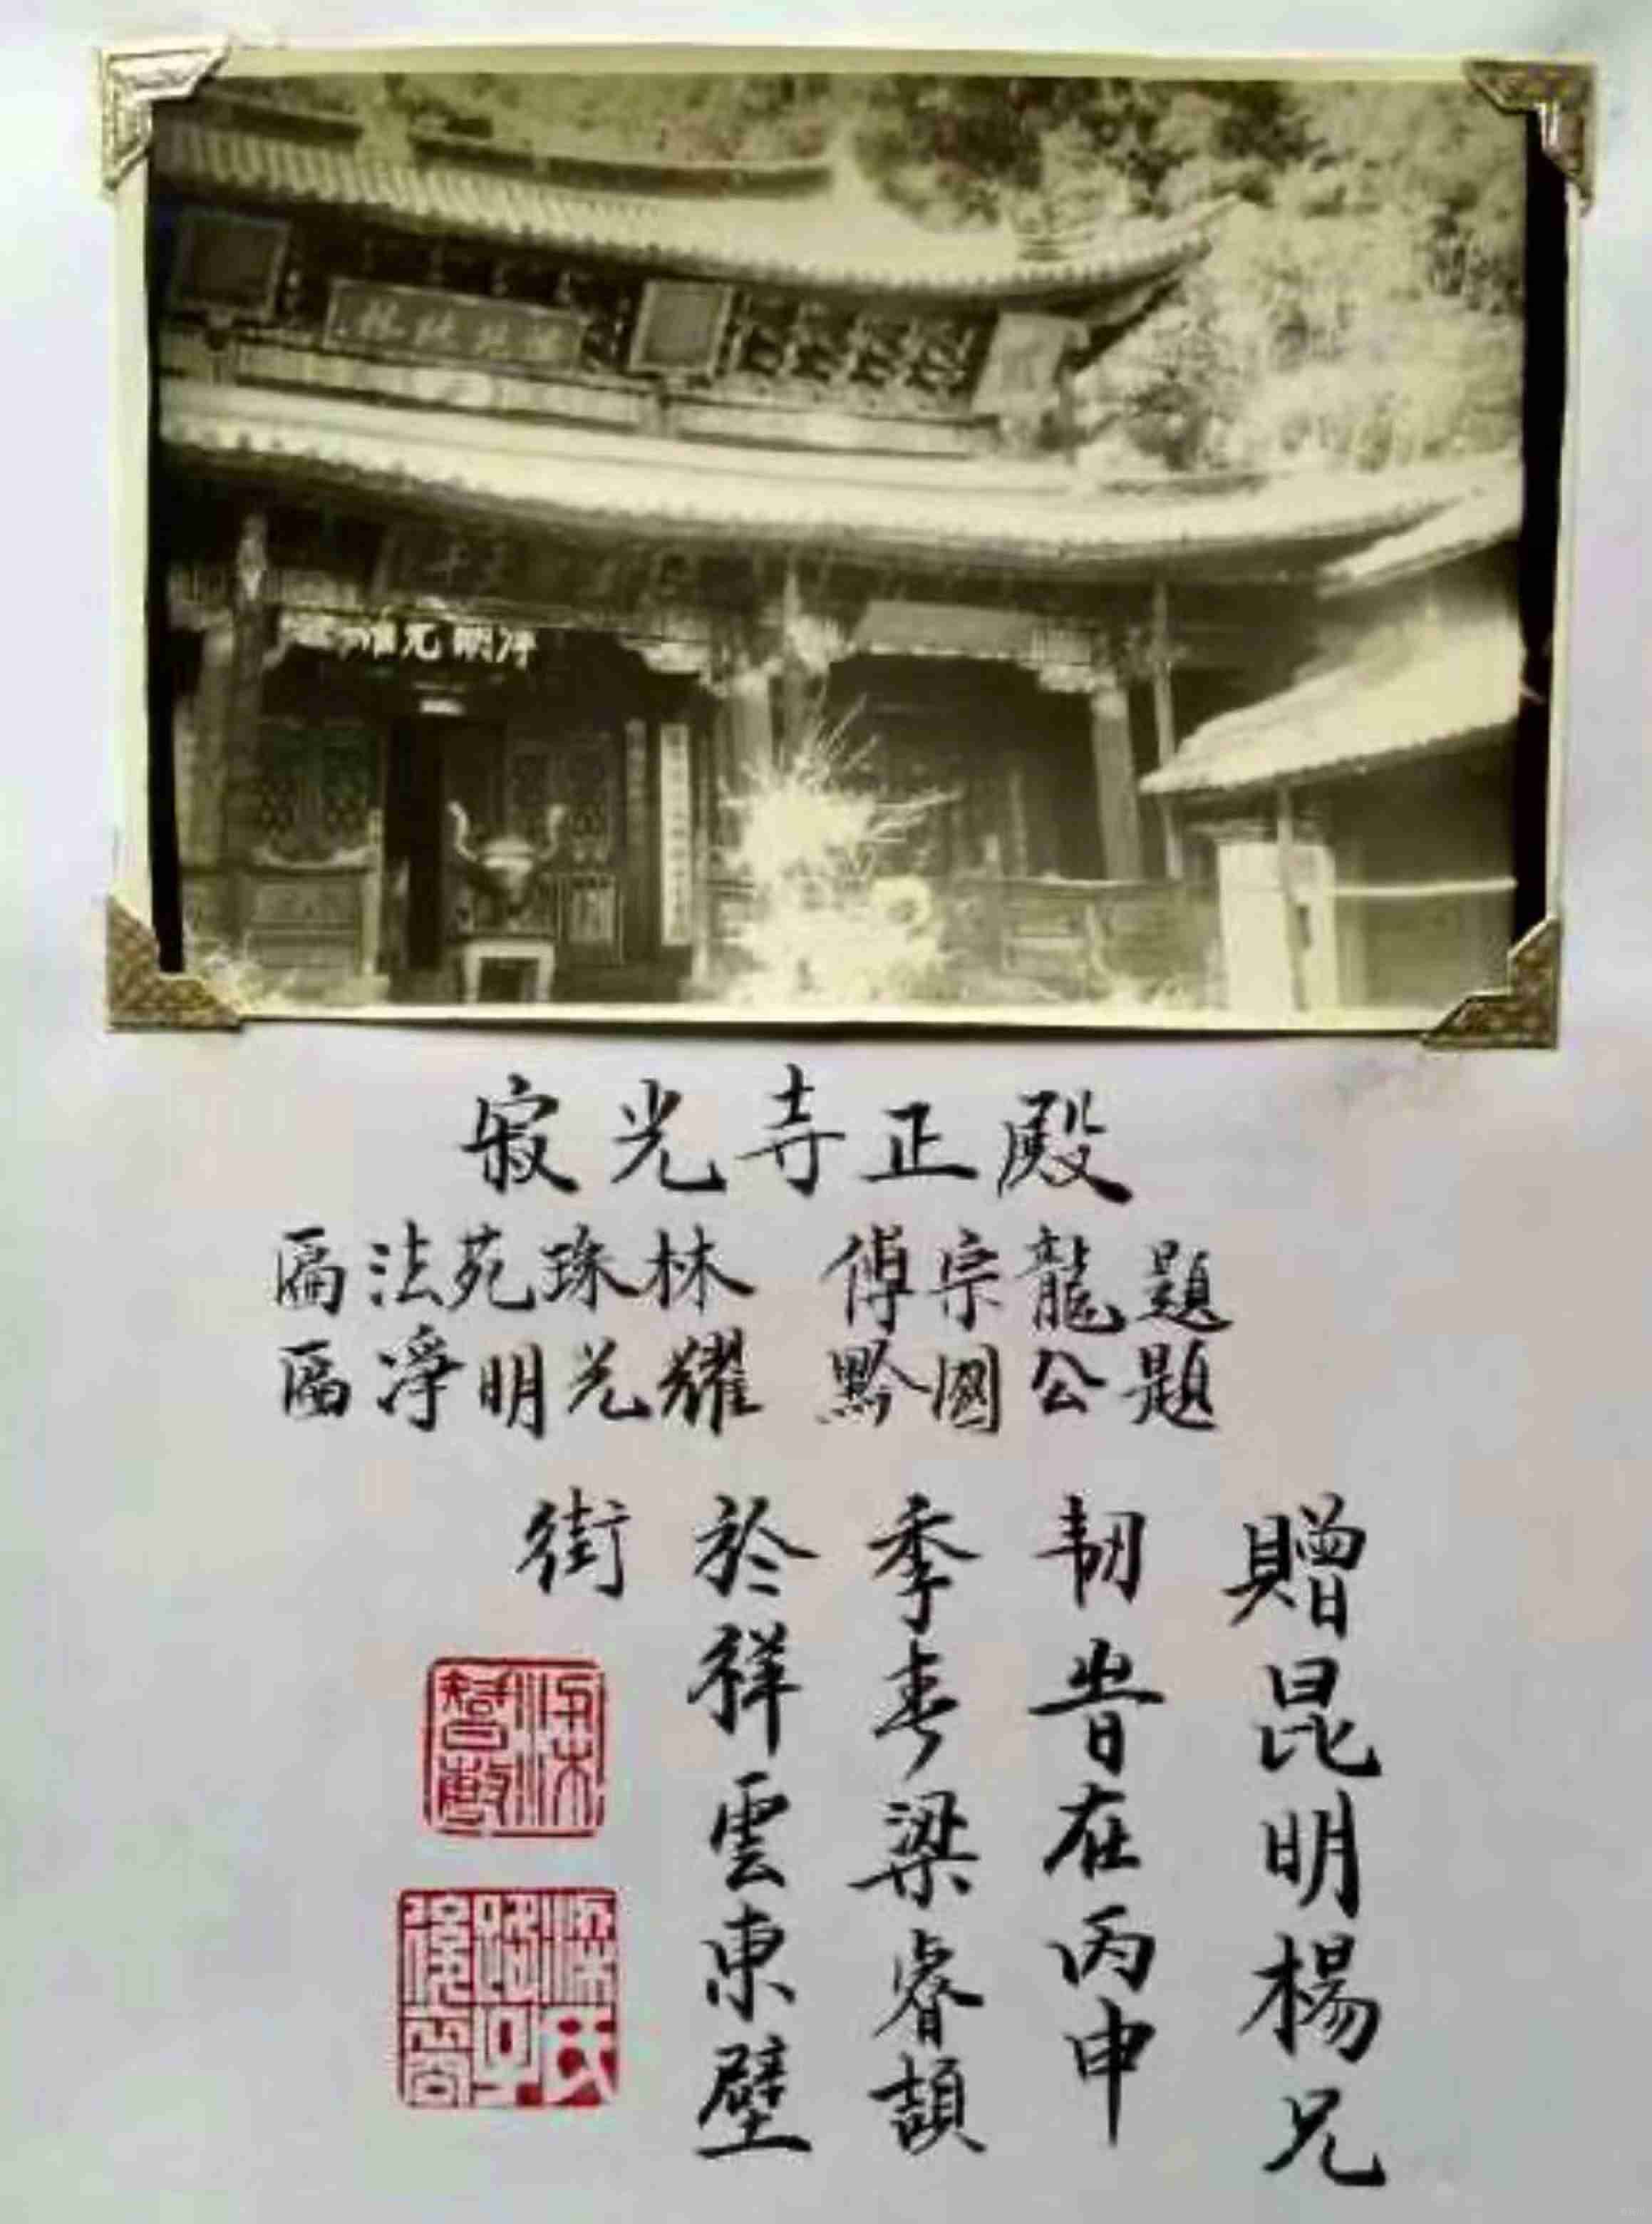 淨明光耀
寂光寺正殿
匾法苑珠林 傅宗龍題
匾凈明光耀 黔國公題
贈昆明楊兄
韧旹在丙申
季春梁睿頡
於祥雲東壁
街